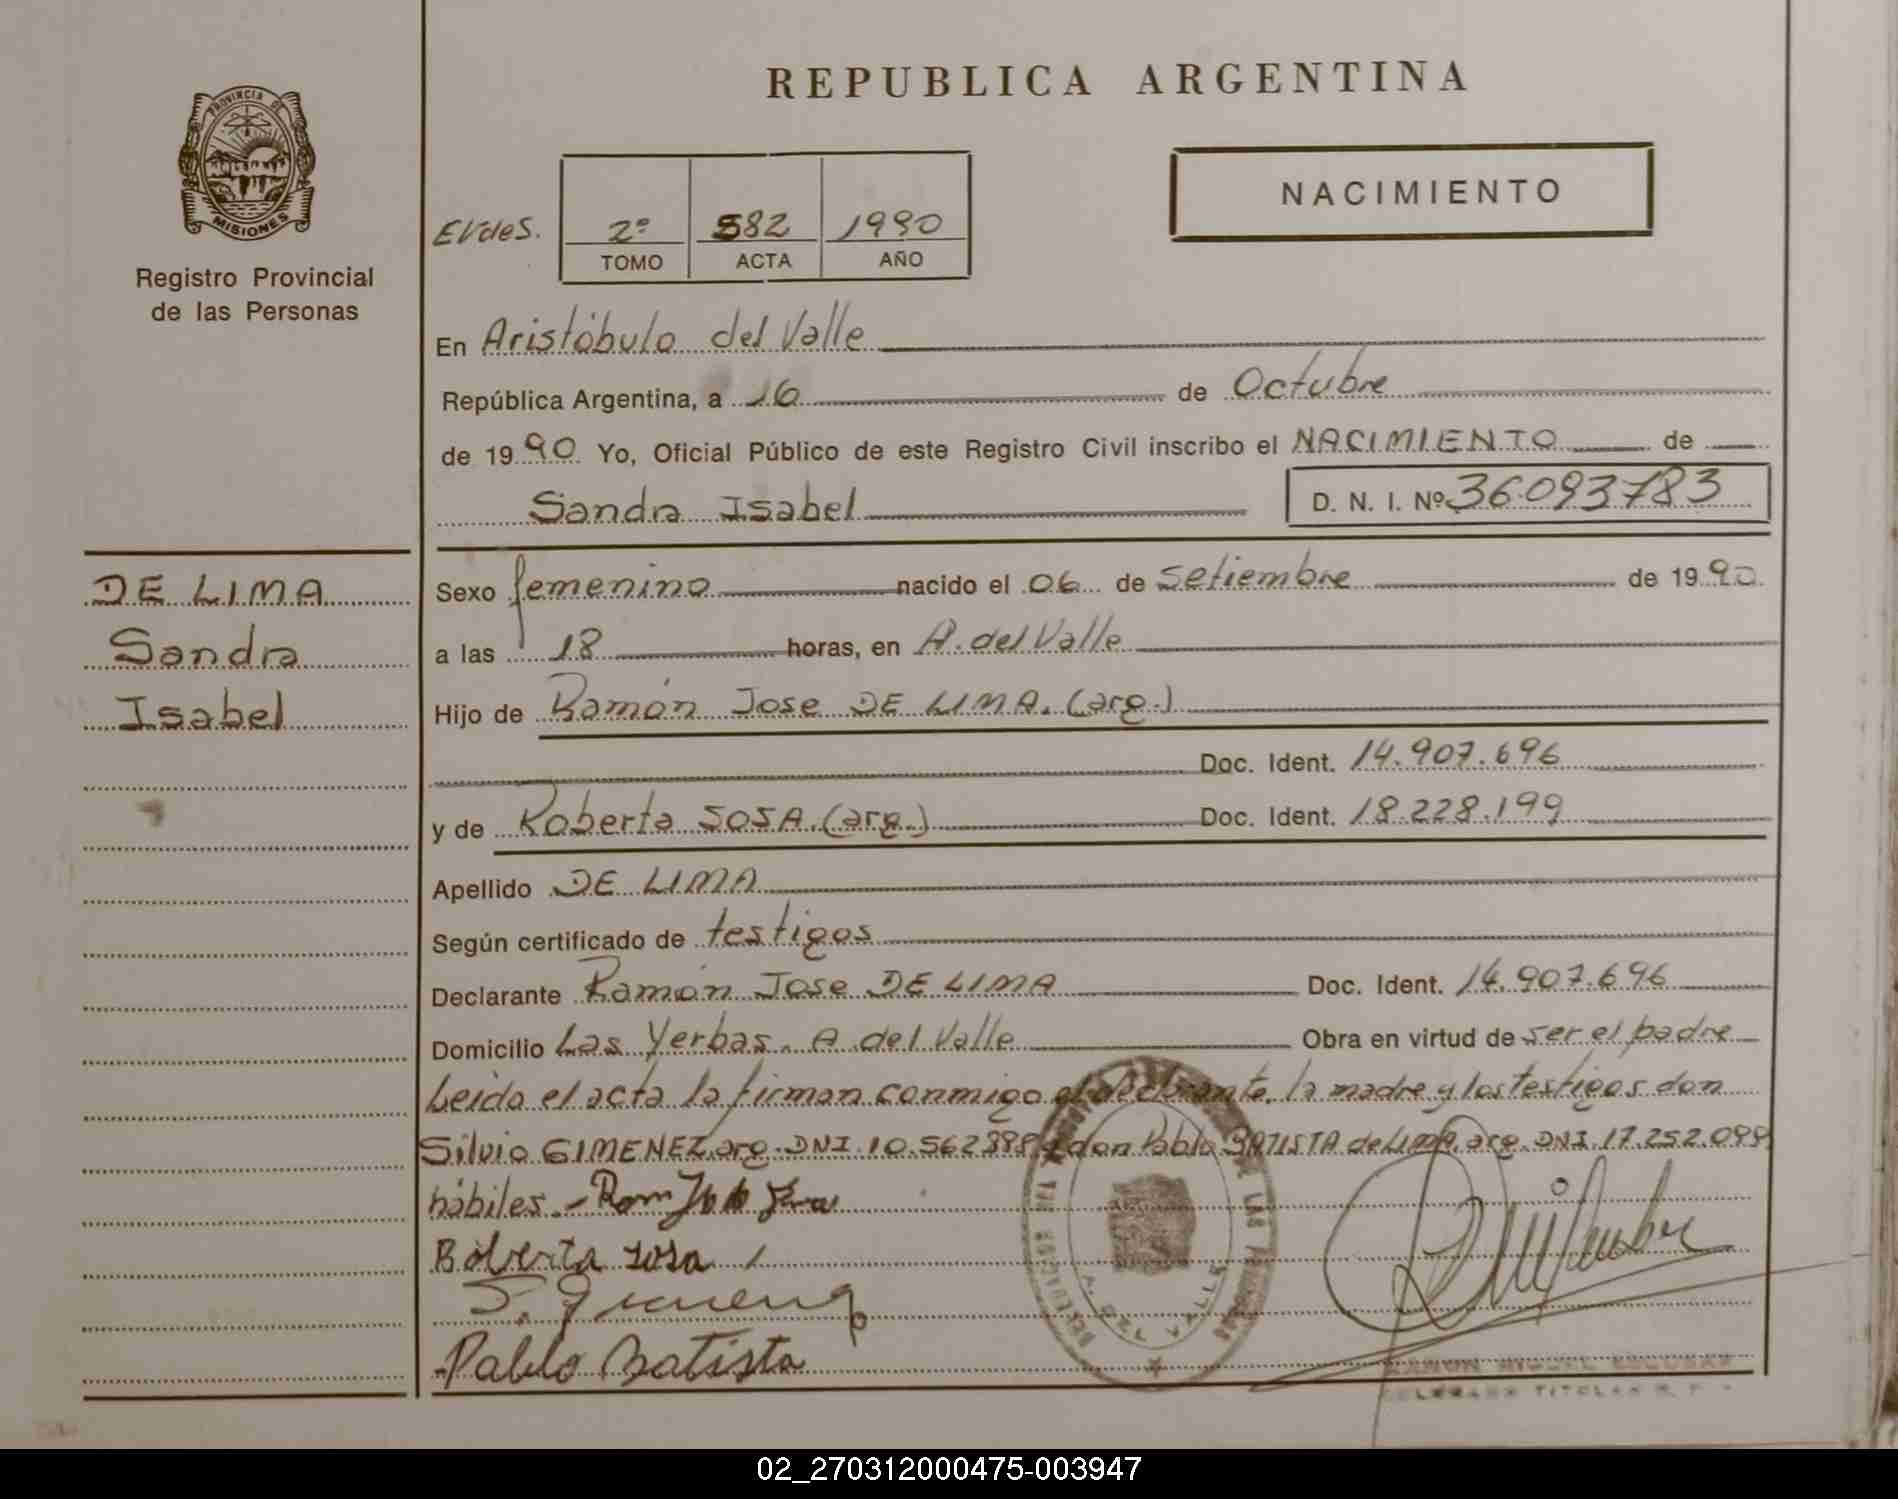 REPUBLICA ARGENTINA
PROVINCIA DE
MISIONES
Registro Provincial
de las Personas
NACIMIENTO
Eldes. 2º 582 1990
TOMO ACTA AÑO
En Aristóbulo del Valle
República Argentina, a 16 de Octubre
de 1990 Yo, Oficial Público de este Registro Civil inscribo el NACIMIENTO de
Sandra Isabel D. N. I. Nº 36.093783
DE LIMA
Sandra
Isabel
Sexo femenino nacido el 06 de Setiembre de 1990
a las 18 horas, en A. del Valle
Hijo de Ramón Jose DE LIMA. (arg.)
Doc. Ident. 14.907.696
y de Roberta SOSA. (arg.) Doc. Ident. 18.228.199
Apellido DE LIMA
Según certificado de testigos
Declarante Ramón Jose DE LIMA Doc. Ident. 14.907.696
Domicilio Las Yerbas. A del Valle Obra en virtud de ser el padre
Leída el acta la firman conmigo el declarante, la madre y los testigos don
Silvio GIMENEZ, arg. DNI. 10.562888 y don Pablo BATISTA de LIMA, arg. DNI. 17.252.099
hábiles.-
Roberta Sosa
Pablo Batista
A. DEL VALLE
RAMON MIGUEL ESCOBAR
DELEGADO TITULAR R. P.
02_270312000475-003947